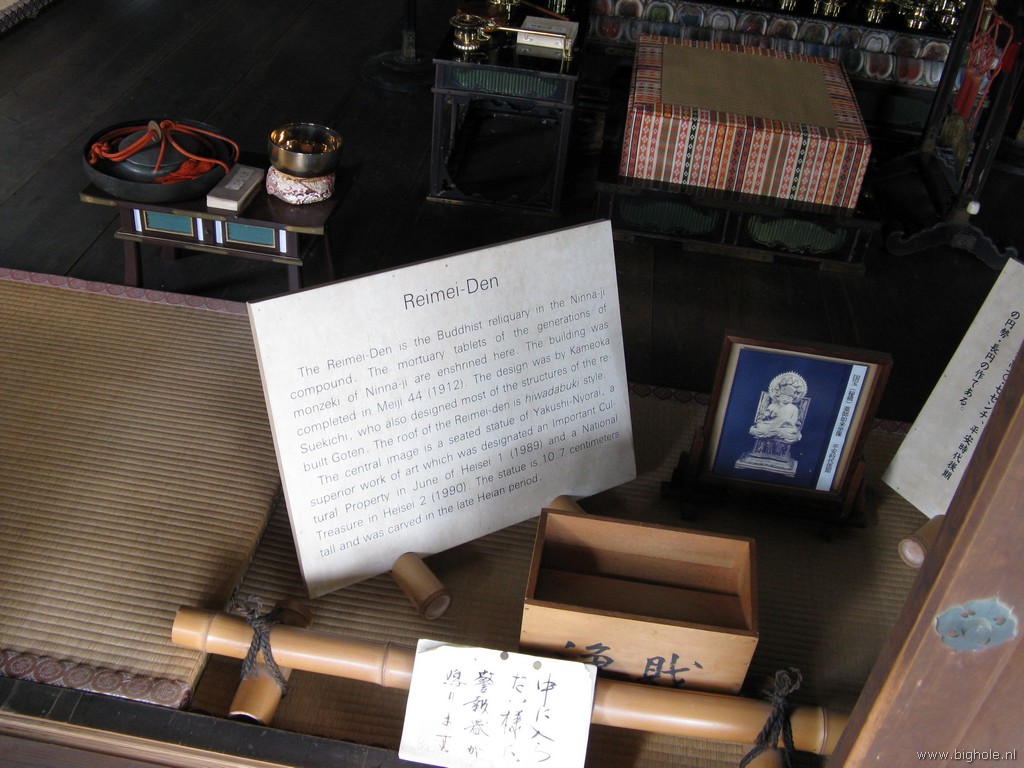 Reimei-Den
The Reimei-Den is the Buddhist reliquary in the Ninna-ji
compound. The mortuary tablets of the generations of
monzeki of Ninna-ji are enshrined here. The building was
completed in Meiji 44 (1912). The design was by Kameoka
Suekichi, who also designed most of the structures of the re-
built Goten. The roof of the Reimei-den is hiwadabuki style.
The central image is a seated statue of Yakushi-Nyorai, a
superior work of art which was designated an Important Cul-
tural Property in June of Heisei 1 (1989) and a National
Treasure in Heisei 2 (1990). The statue is 10.7 centimeters
tall and was carved in the late Heian period.
国宝(秘仏) 薬師如来坐像 平安時代後期
の円勢・長円の作である。
センチ、平安時代後期
浄財
中に入ら
ない様に、
警報器が
鳴ります
www.bighole.nl